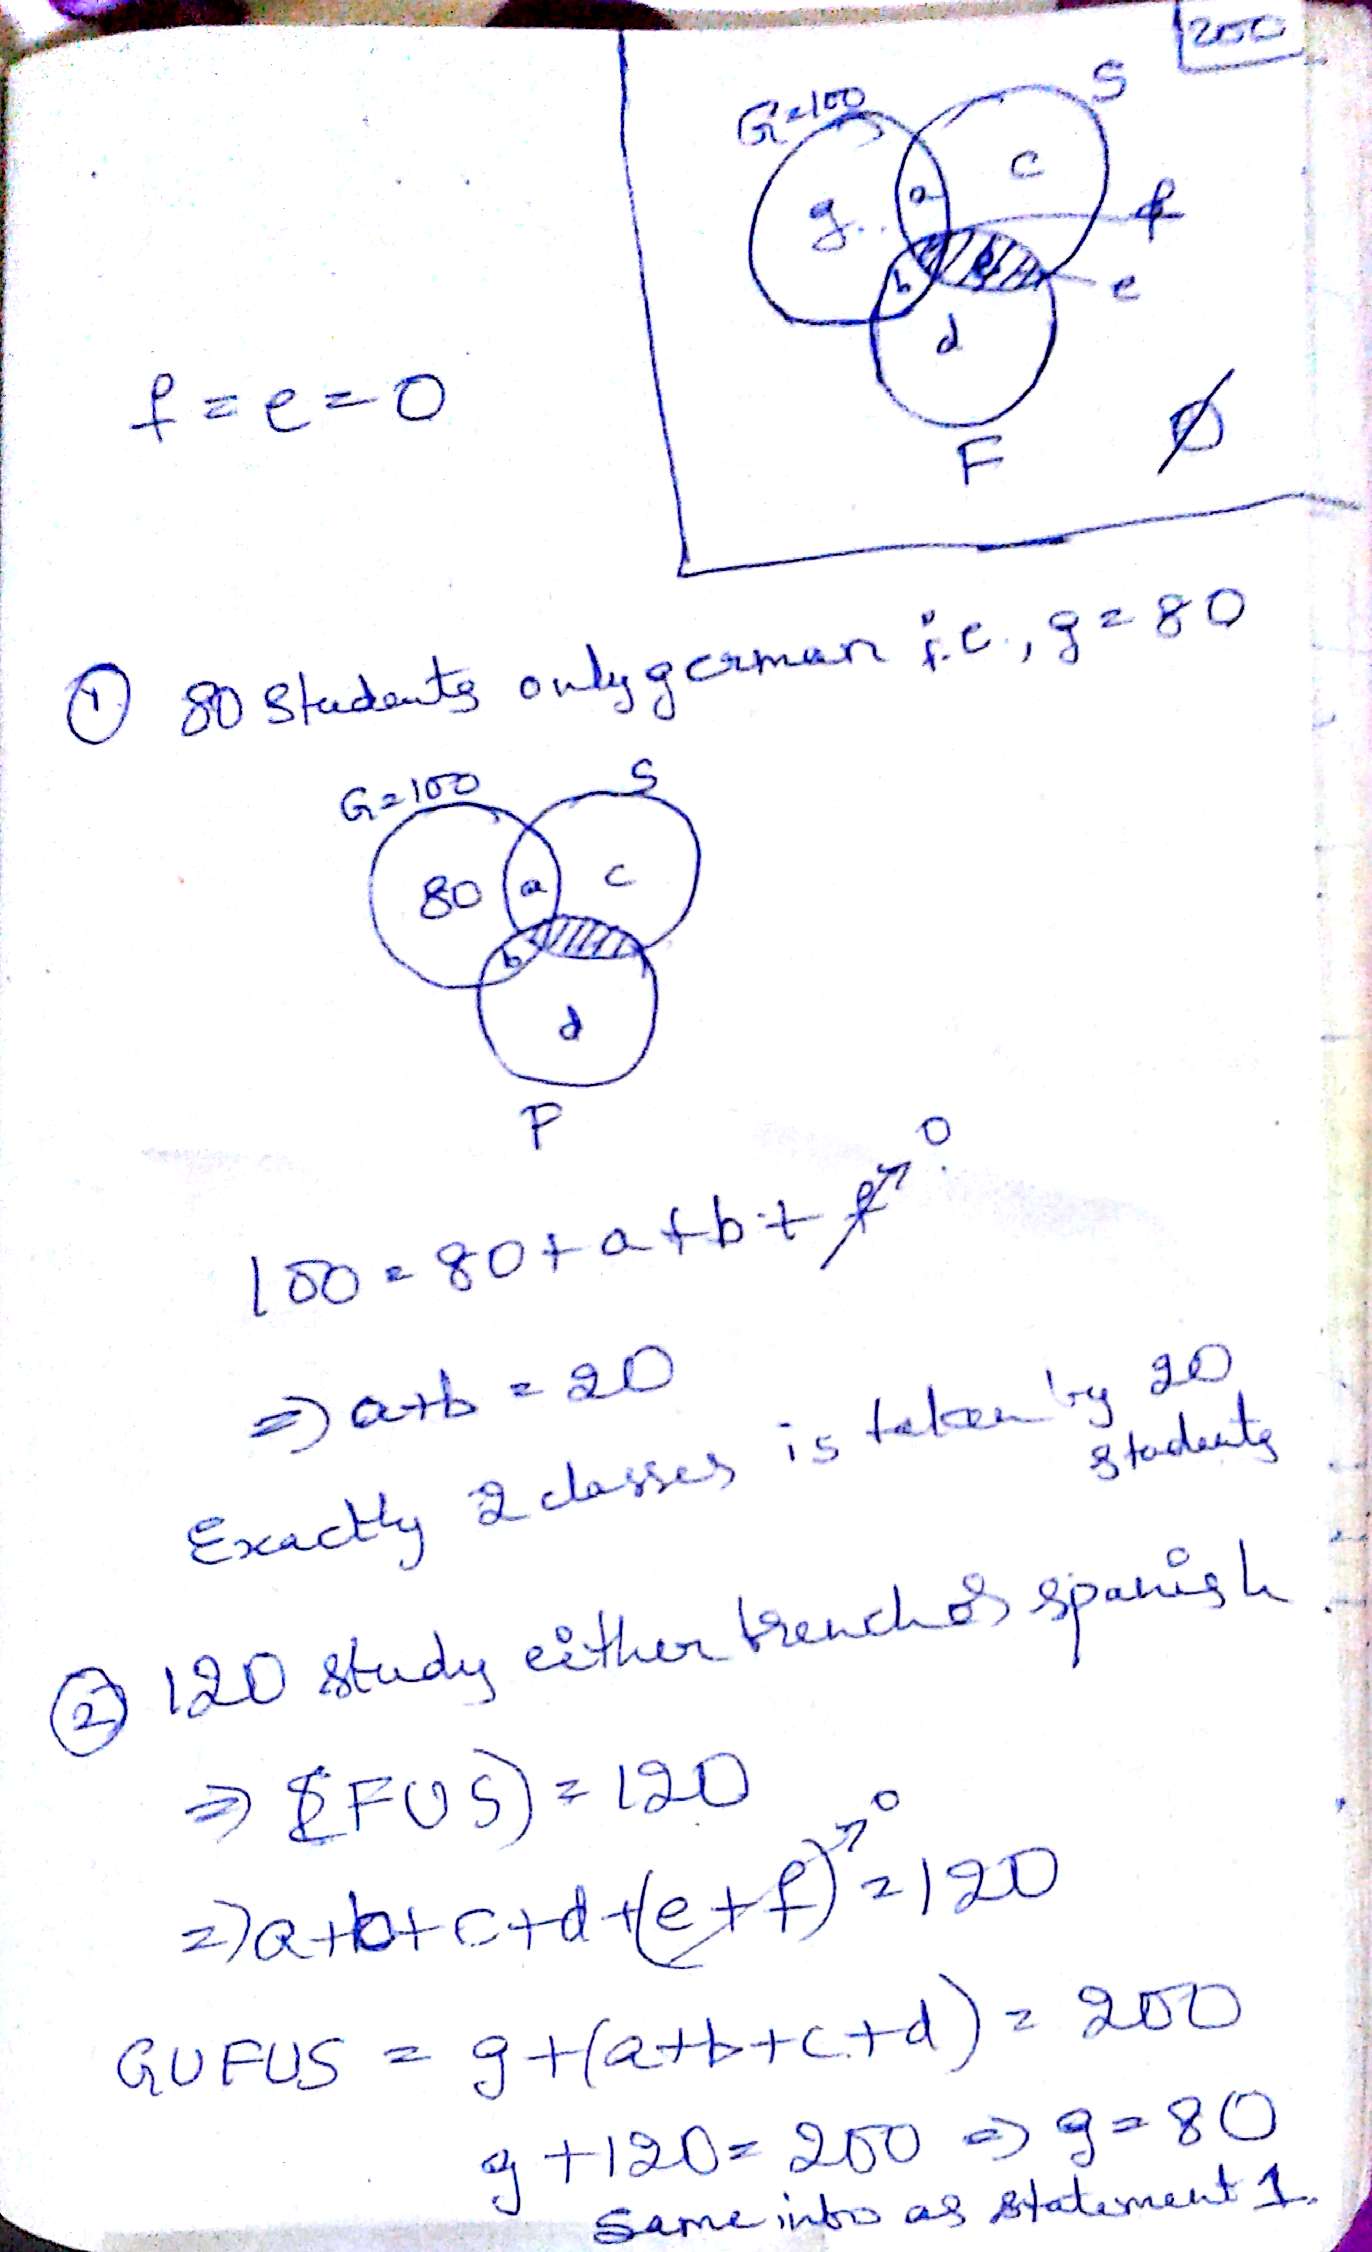 200
G=100
S
g
a
c
f
b
e
d
e
F
ø
f=e=0
① 80 Students only german i.e., g=80
G=100
S
80
a
c
b
d
F
100=80+a+b+f↗0
⇒ a+b=20
Exactly 2 classes is taken by 20 students
② 120 study either french or spanish
⇒ (FUS)=120
⇒ a+b+c+d+(e+f)↗0=120
GUFUS = g+(a+b+c+d) = 200
g+120=200 ⇒ g=80
same info as statement 1.